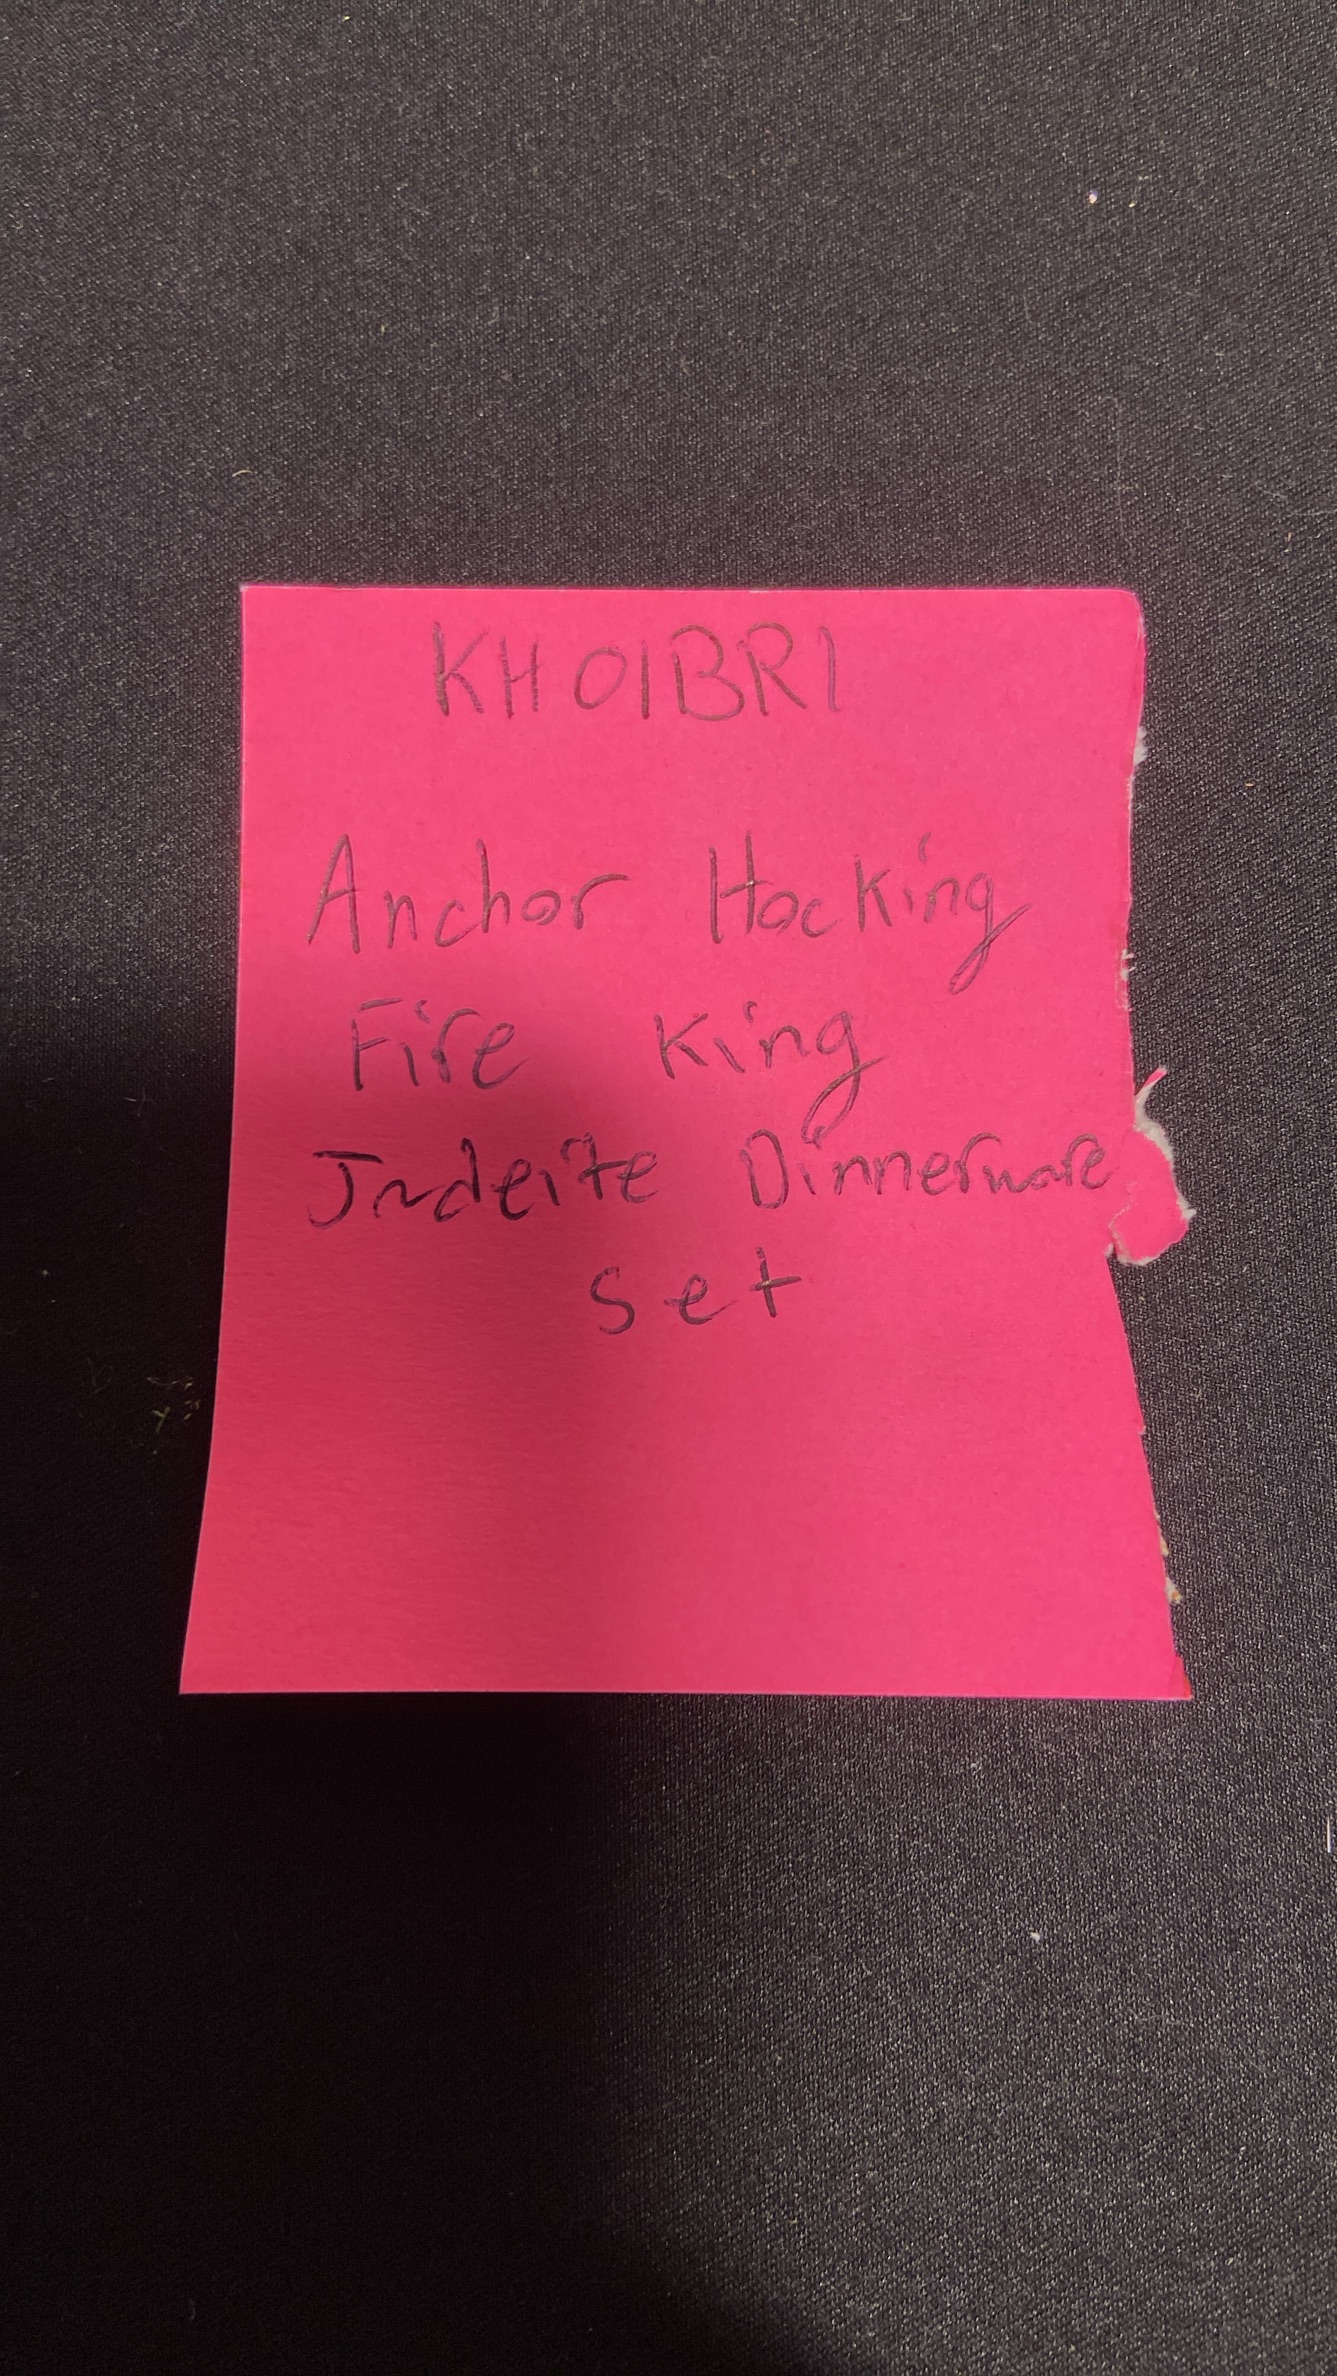 KHOIBRI
Anchor Hocking
Fire King
Jadeite Dinnerware
Set